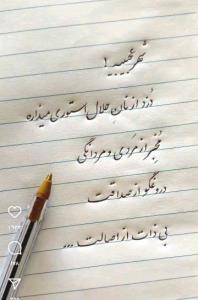 شهر عجیبیه !
دزد از نان حلال استوری میذاره
مُخبر از مَردی و مردانگی
دروغگو از صداقت
بی ذات از اصالت ...